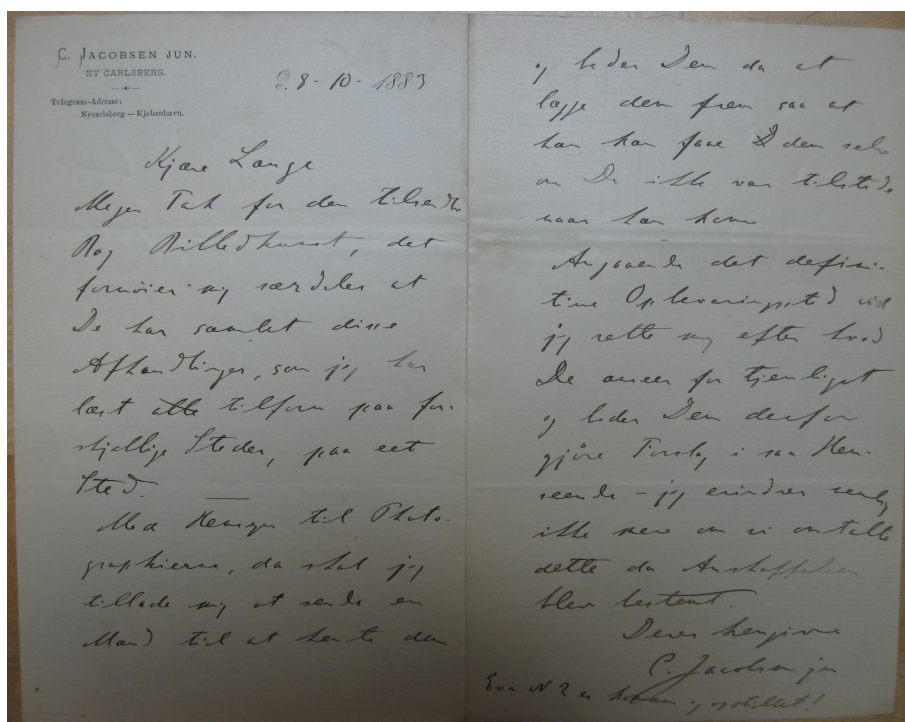 C. JACOBSEN JUN.
NY CARLSBERG.
Telegram-Adresse:
Nycarlsberg — Kjøbenhavn.
28-10-1883
Kjære Lange
Megen Tak for den tilsendte
Bog Billedkunst, det
fornøier mig særdeles at
De har samlet disse
Afhandlinger, som jeg har
læst alle tilforn paa for-
skjellige Steder, paa eet
Sted.
Med Hensyn til Photo-
graphierne, da skal jeg
tillade mig at sende en
Mand til at hente dem
og beder Dem da at
lægge dem frem saa at
han kan faae dem selv
om De ikke var tilstede
naar han kom
Angaaende det defini-
tive Opbevaringssted vil
jeg rette mig efter hvad
De anseer for tjenligst
og beder Dem derfor
gjöre Forslag i saa Hen-
seende - jeg erindrer nemlig
ikke mere om vi omtalte
dette da Anskaffelsen
blev bestemt.
Deres hengivne
C. Jacobsen jun
Eva N 2 er kommen og opstillet!